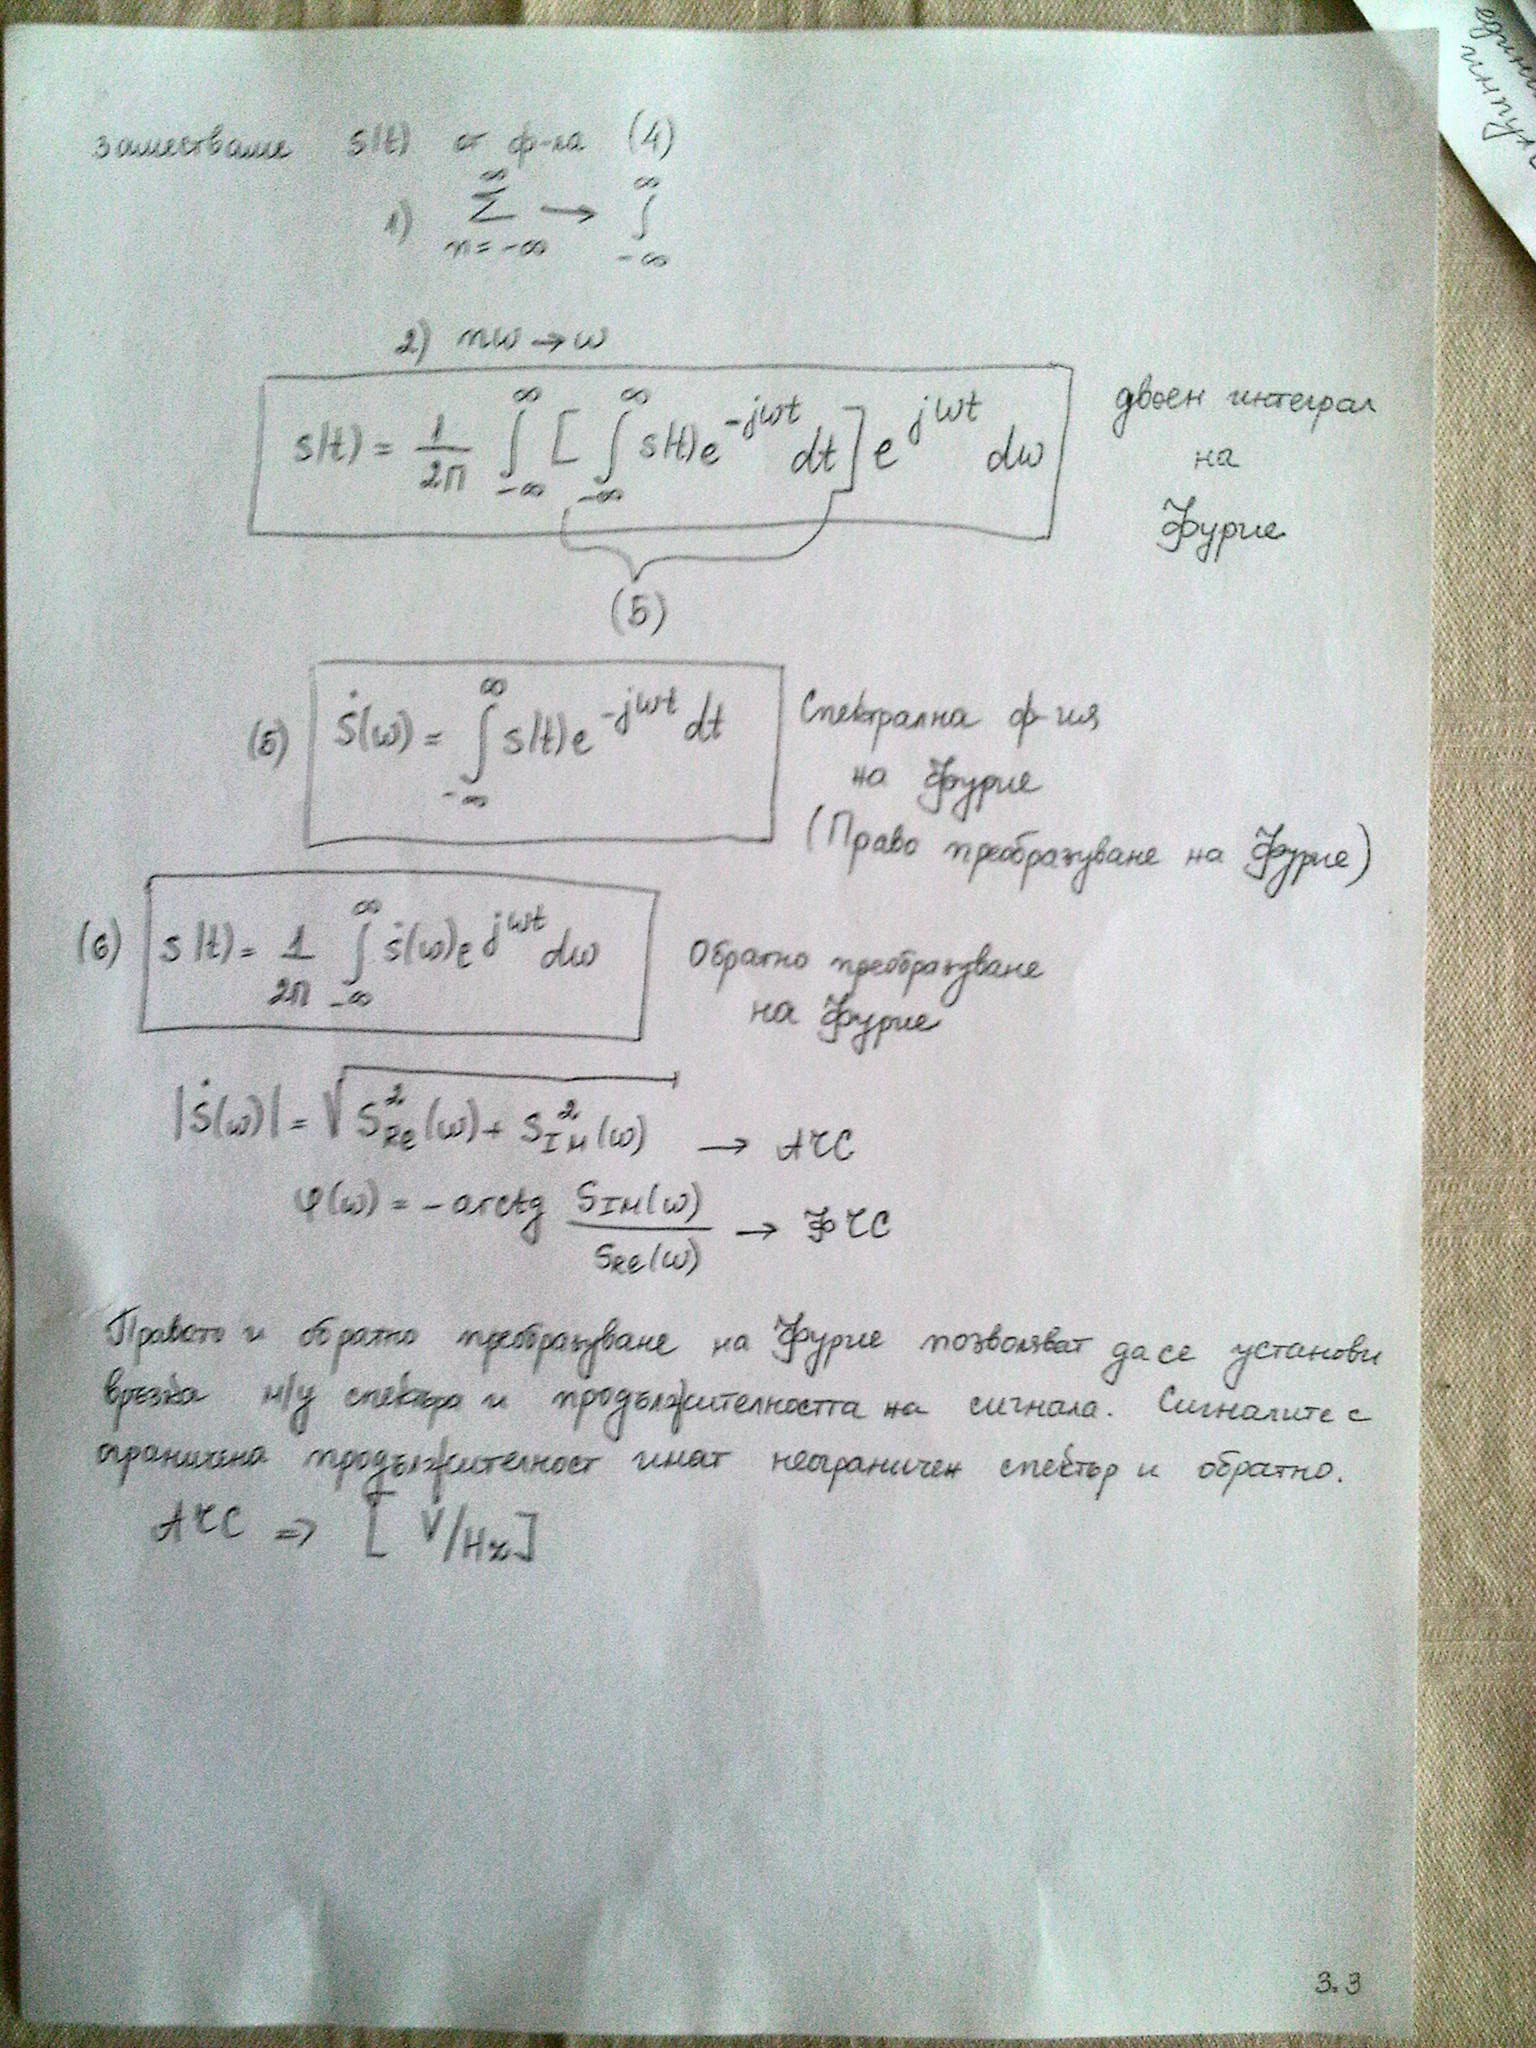 заместваме s(t) от ф-ла (4)
1) ∞ Σ n=-∞ → ∞ ∫ -∞
2) nω → ω
s(t) = 1/2π ∫_{-∞}^{∞} [ ∫_{-∞}^{∞} s(t) e^{-jωt} dt ] e^{jωt} dω
двоен интеграл
на
Фурие
(5)
(5) Ṡ(ω) = ∫_{-∞}^{∞} s(t) e^{-jωt} dt
Спектрална ф-ия
на Фурие
(Право преобразуване на Фурие)
(6) s(t) = 1/2π ∫_{-∞}^{∞} ṡ(ω) e^{jωt} dω
Обратно преобразуване
на Фурие
|Ṡ(ω)| = √(S_Re^2(ω) + S_IM^2(ω)) → АЧС
φ(ω) = -arctg S_IM(ω)/S_Re(ω) → ФЧС
Правото и обратно преобразуване на Фурие позволяват да се установи
връзка м/у спектъра и продължителността на сигнала. Сигналите с
ограничена продължителност имат неограничен спектър и обратно.
АЧС => [V/Hz]
3.3